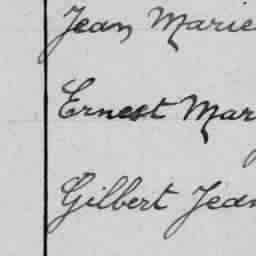 Jean Marie
Ernest Mar
Gilbert Jean